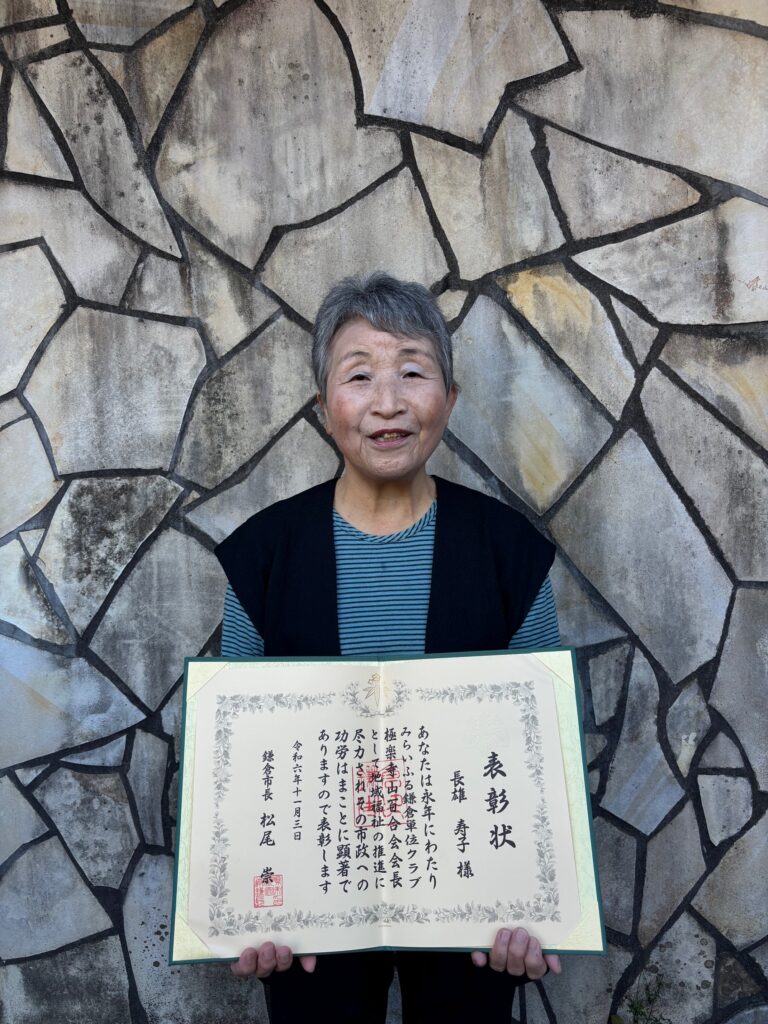 表彰状
長雄 寿子 様
あなたは永年にわたり
みらいふる鎌倉単位クラブ
極楽寺山百合会会長
として地域福祉の推進に
尽力されその市政への
功労はまことに顕著で
ありますので表彰します
令和六年十一月三日
鎌倉市長 松尾 崇